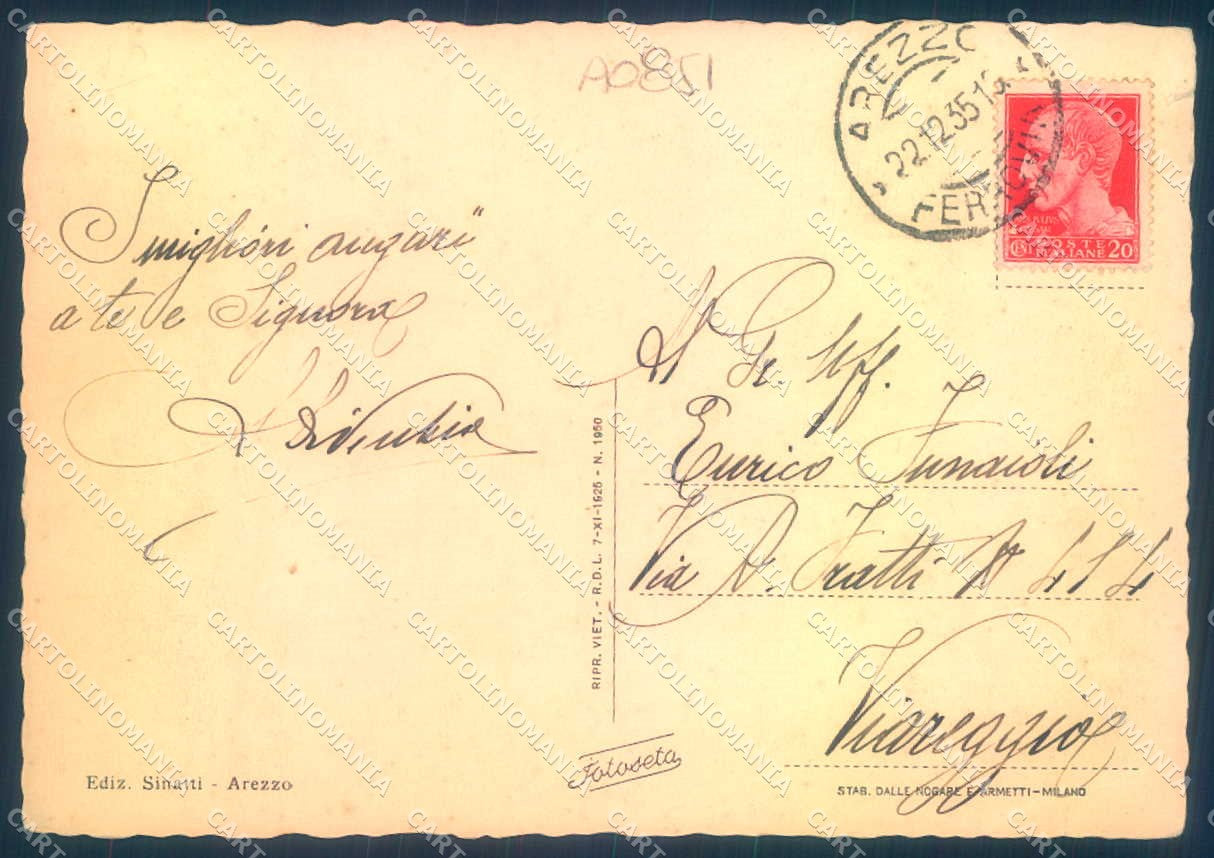 A0851
AREZZO
22.12.35.1
FERROVIA
POSTE
ITALIANE
CENT 20
I migliori auguri
a te e Signora
Al Gr. Uff.
Enrico Funaioli
Via A. Fratti N 414
Viareggio
RIPR. VIET. - R.D.L. 7-XI-1925 - N. 1950
Fotoseta
Ediz. Sinatti - Arezzo
STAB. DALLE NOGARE E ARMETTI-MILANO
CARTOLINOMANIA